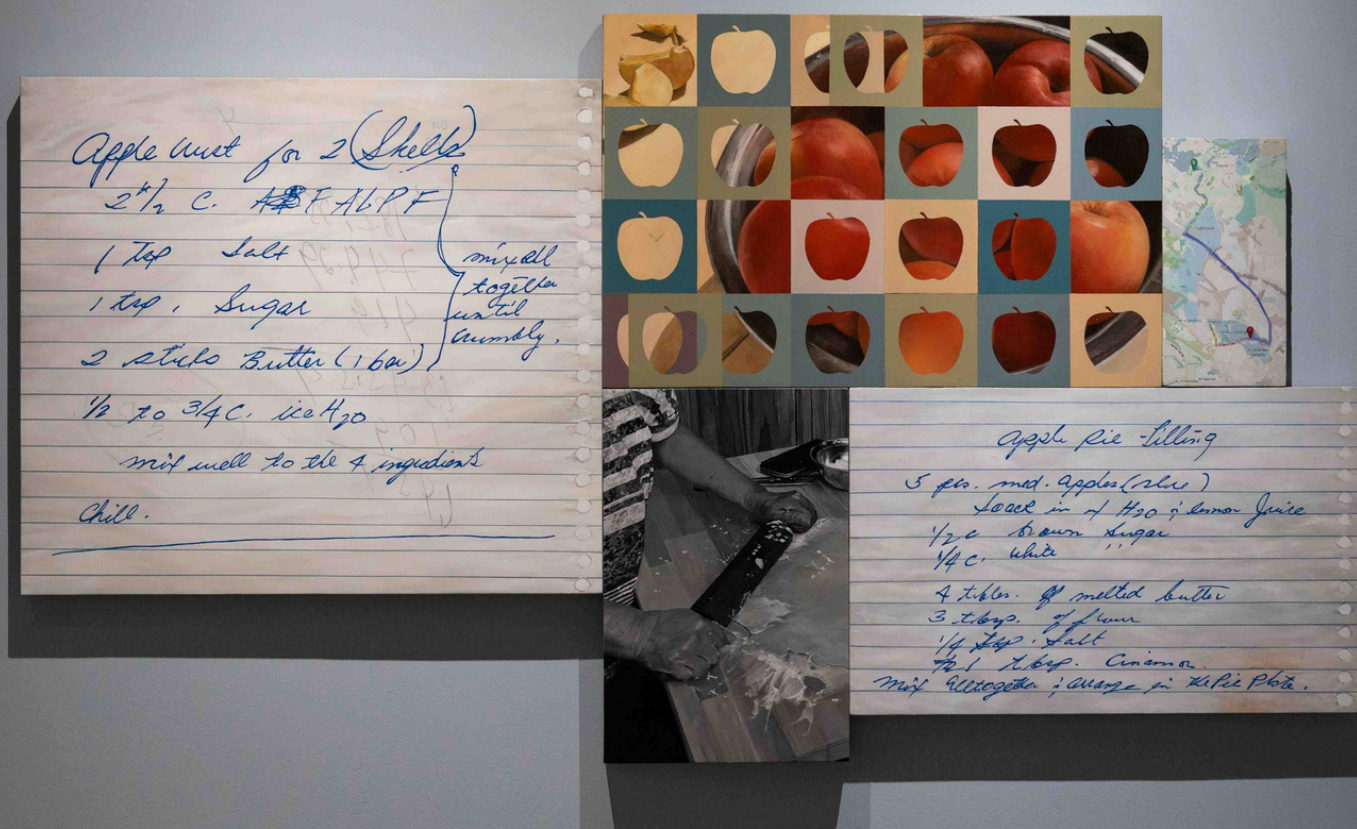 Apple crust for 2 (Shells)
2 1/2 C. A F A L P F
1 tsp Salt
1 tsp. Sugar
2 sticks Butter (1 bar)
mix all
together
until
crumbly.
1/2 to 3/4 C. ice H2O
mix well to the 4 ingredients
Chill.
apple pie filling
med. apples (slice)
Soack in w/ H2O & lemon Juice
1/2 c brown sugar
1/4 c. white "
4 tbles. of melted butter
3 tbsp. of flour
1/4 tsp. Salt
1 tbsp. Cinamon.
mix alltogether & arrange in the Pie Plate.